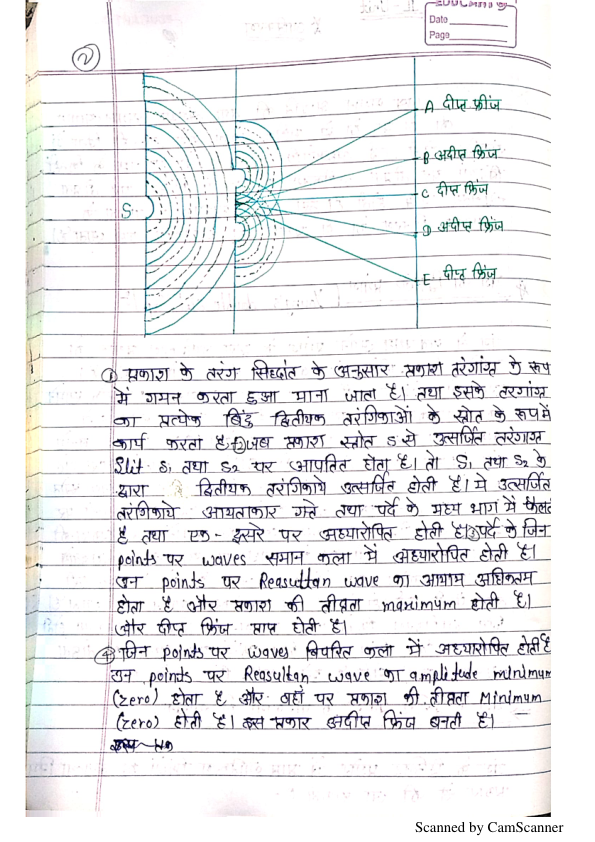 EDUCATION
Date
Page
2
A दीप्त फ्रींज
B अदीप्त फ्रिंज
S
C दीप्त फ्रिंज
D अदीप्त फ्रिंज
E दीप्त फ्रिंज
① प्रकाश के तरंग सिध्दांत के अनुसार प्रकाश तरंगांग्र के रूप
में गमन करता हुआ माना जाता है। तथा इसके तरगांग्र
का प्रत्येक बिंदु द्वितीयक तरंगिकाओं के स्रोत के रूप में
कार्य करता है। जब प्रकाश स्रोत S से उत्सर्जित तरंगाग्र
Slit S₁ तथा S₂ पर आपतित होता है। तो S₁ तथा S₂ के
द्वारा द्वितीयक तरंगिकाये उत्सर्जित होती है। ये उत्सर्जित
तरंगिकाये आयताकार गत्ते तथा पर्दे के मध्य भाग में फैलते
है तथा एक-दूसरे पर अध्यारोपित होती है। ③ पर्दे के जिन
points पर waves समान कला में अध्यारोपित होती है।
उन points पर Reasuttan wave का आयाम अधिकतम
होता है और प्रकाश की तीव्रता maximum होती है।
और दीप्त फ्रिंज प्राप्त होती है।
④ जिन points पर waves विपरित कला में अध्यारोपित होती है
उन points पर Reasultan wave का amplitude minimum
(zero) होता है और वहाँ पर प्रकाश की तीव्रता Minimum
(zero) होती है। इस प्रकार अदीप्त फ्रिंज बनती है।
Scanned by CamScanner